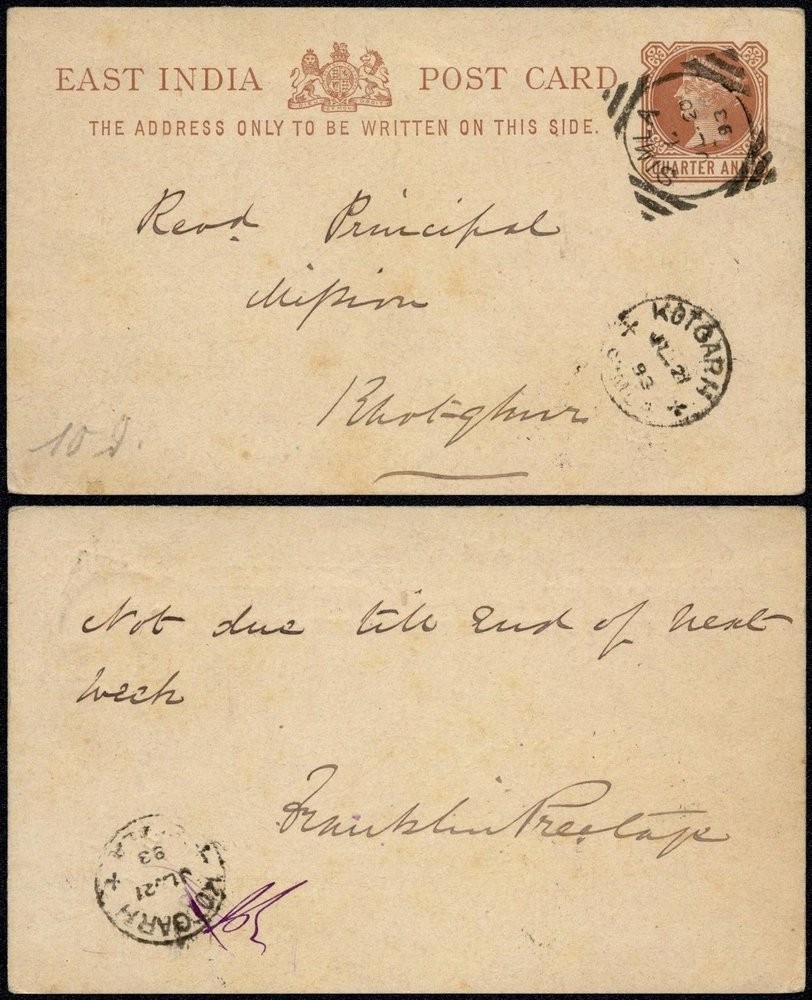 EAST INDIA POST CARD
THE ADDRESS ONLY TO BE WRITTEN ON THIS SIDE.
QUARTER ANNA
SIMLA
JL 20
93
Revd Principal
Mission
Khotghur
KOTGARH
JL 21
93
10 d.
Not due till End of next
Week
Franklin Prestage
KOTGARH
JL 21
93